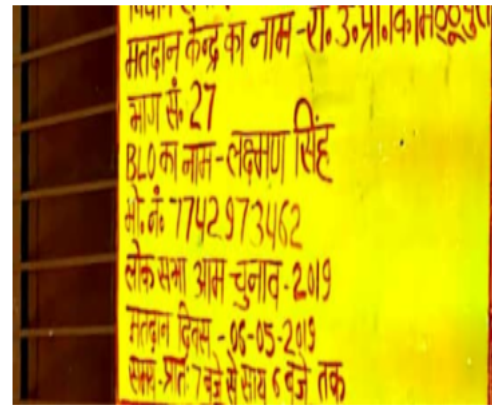 मतदान केन्द्र का नाम - रा. उ. प्रा. वि.
भाग सं. 27
BLO का नाम - लक्ष्मण सिंह
मो. नं. 7742973462
लोक सभा आम चुनाव - 2019
मतदान दिवस - 06-05-2019
समय - प्रातः 7 बजे से सायं 6 बजे तक